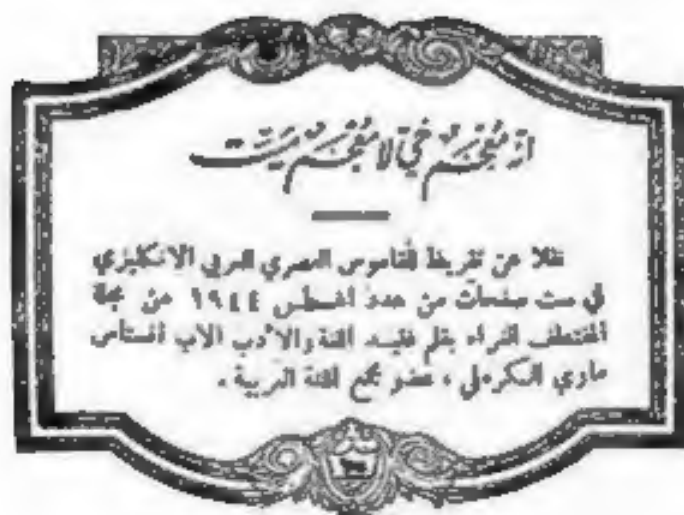 انه معجم حي لا معجم ميت
نقلا عن تقريظ القاموس العصري العربي الانكليزي
في ست صفحات من عدد اغسطس ١٩٤٤ من مجلة
المقتطف الغراء بقلم فقيد اللغة والأدب الاب انستاس
ماري الكرملي ، عضو مجمع اللغة العربية .